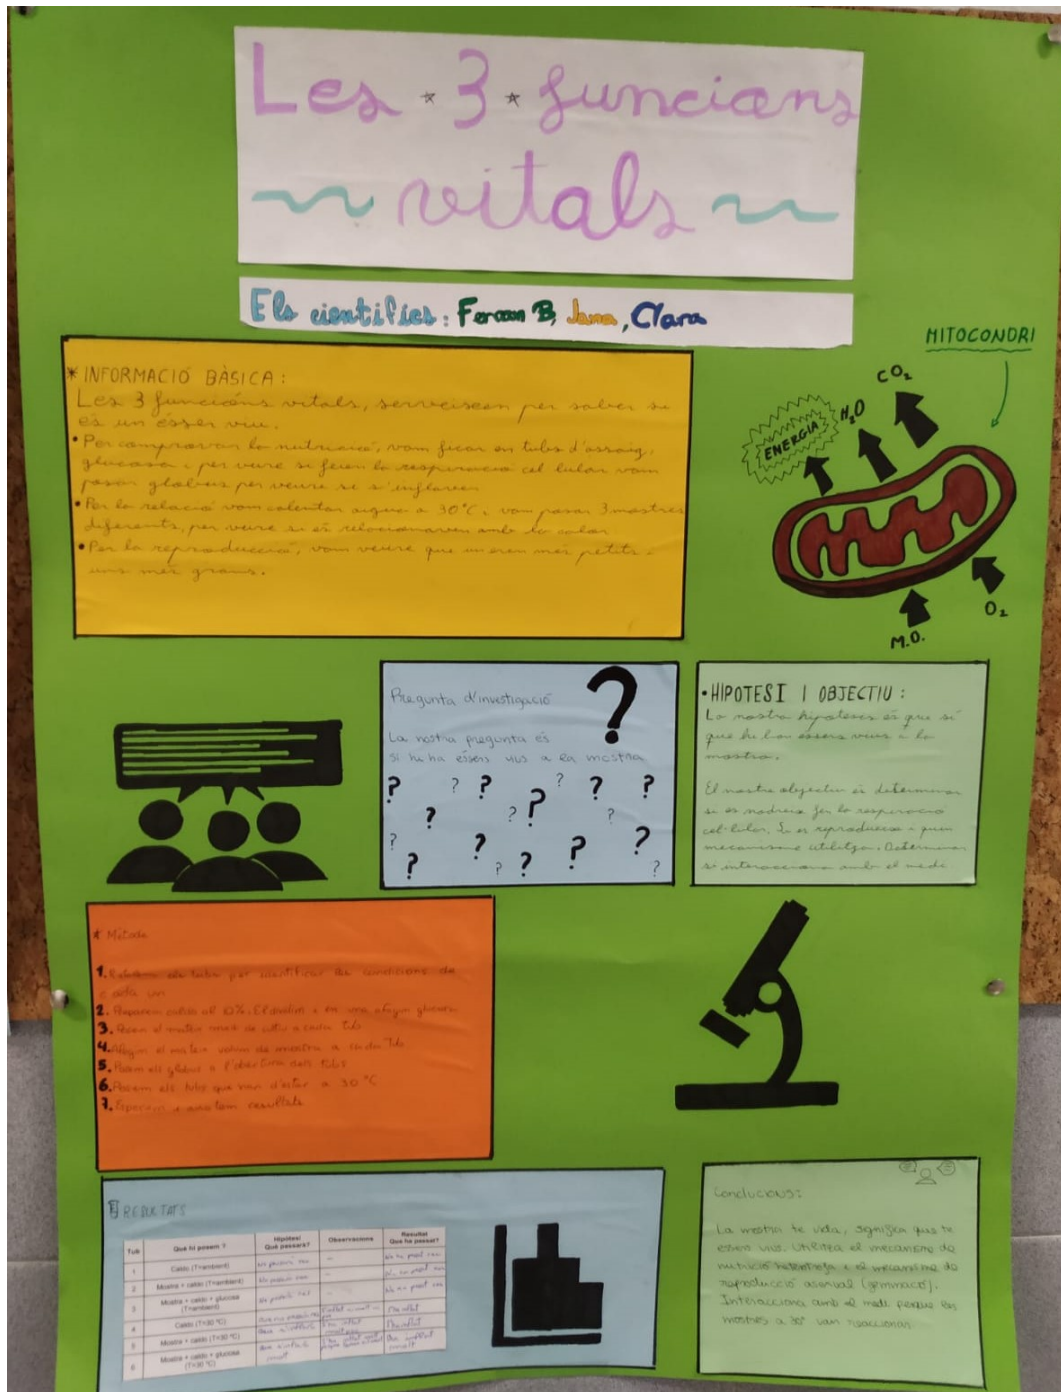 Les 3 funcions
vitals
Els científics: Ferran B, Jana, Clara
MITOCONDRI
CO₂
H₂O
ENERGIA
O₂
M.O.
* INFORMACIÓ BÀSICA:
Les 3 funcions vitals, serveixen per saber si
és un ésser viu.
• Per comprovar la nutrició, vam ficar en tubs d'assaig,
glucosa i per veure si feien la respiració cel·lular vam
posar globus per veure se s'inflaven
• Per la relació vam calentar aigua a 30°C, vam posar 3 mostres
diferents, per veure si es relacionaven amb la calor
• Per la reproducció, vam veure que un eren més petits i
uns més grans.
Pregunta d'investigació
La nostra pregunta és
si hi ha éssers vius a la mostra
?
• HIPOTESI I OBJECTIU:
La nostra hipotesis és que sí
que hi han éssers vius a la
mostra.
El nostre objectiu és determinar
si es nodreix fen la respiració
cel·lular. Si es reprodueix i quin
mecanisme utilitza. Determinar
si interacciona amb el medi
* Mètode
1. els tubs per identificar les condicions de
cada un
2. Preparem caldo al 10%. i en una afegim glucosa
3. Posem el mateix de cultiu a cada tub
4. Afegim el mateix volum de mostra a cada tub
5. Posem els globus a l'obertura dels tubs
6. Posem els tubs que han d'estar a 30°C
7. Esperem i anotem resultats
RESULTATS
Tub Què hi posem ? Hipòtesi Què passarà? Observacions Resultat Què ha passat?
1 Caldo (T=ambient) No passarà res – No ha passat res
2 Mostra + caldo (T=ambient) No passarà res – No ha passat res
3 Mostra + caldo + glucosa (T=ambient) No passarà res – No ha passat res
4 Caldo (T=30 ºC)
5 Mostra + caldo (T=30 ºC)
6 Mostra + caldo + glucosa (T=30 ºC)
Conclucions:
La mostra te vida, significa que te
essers vius. Utilitza el mecanisme de
nutrició heterotrofa i el mecanisme de
reproducció asexual (gemmació).
Interacciona amb el medi perque les
mostres a 30° van reaccionar.